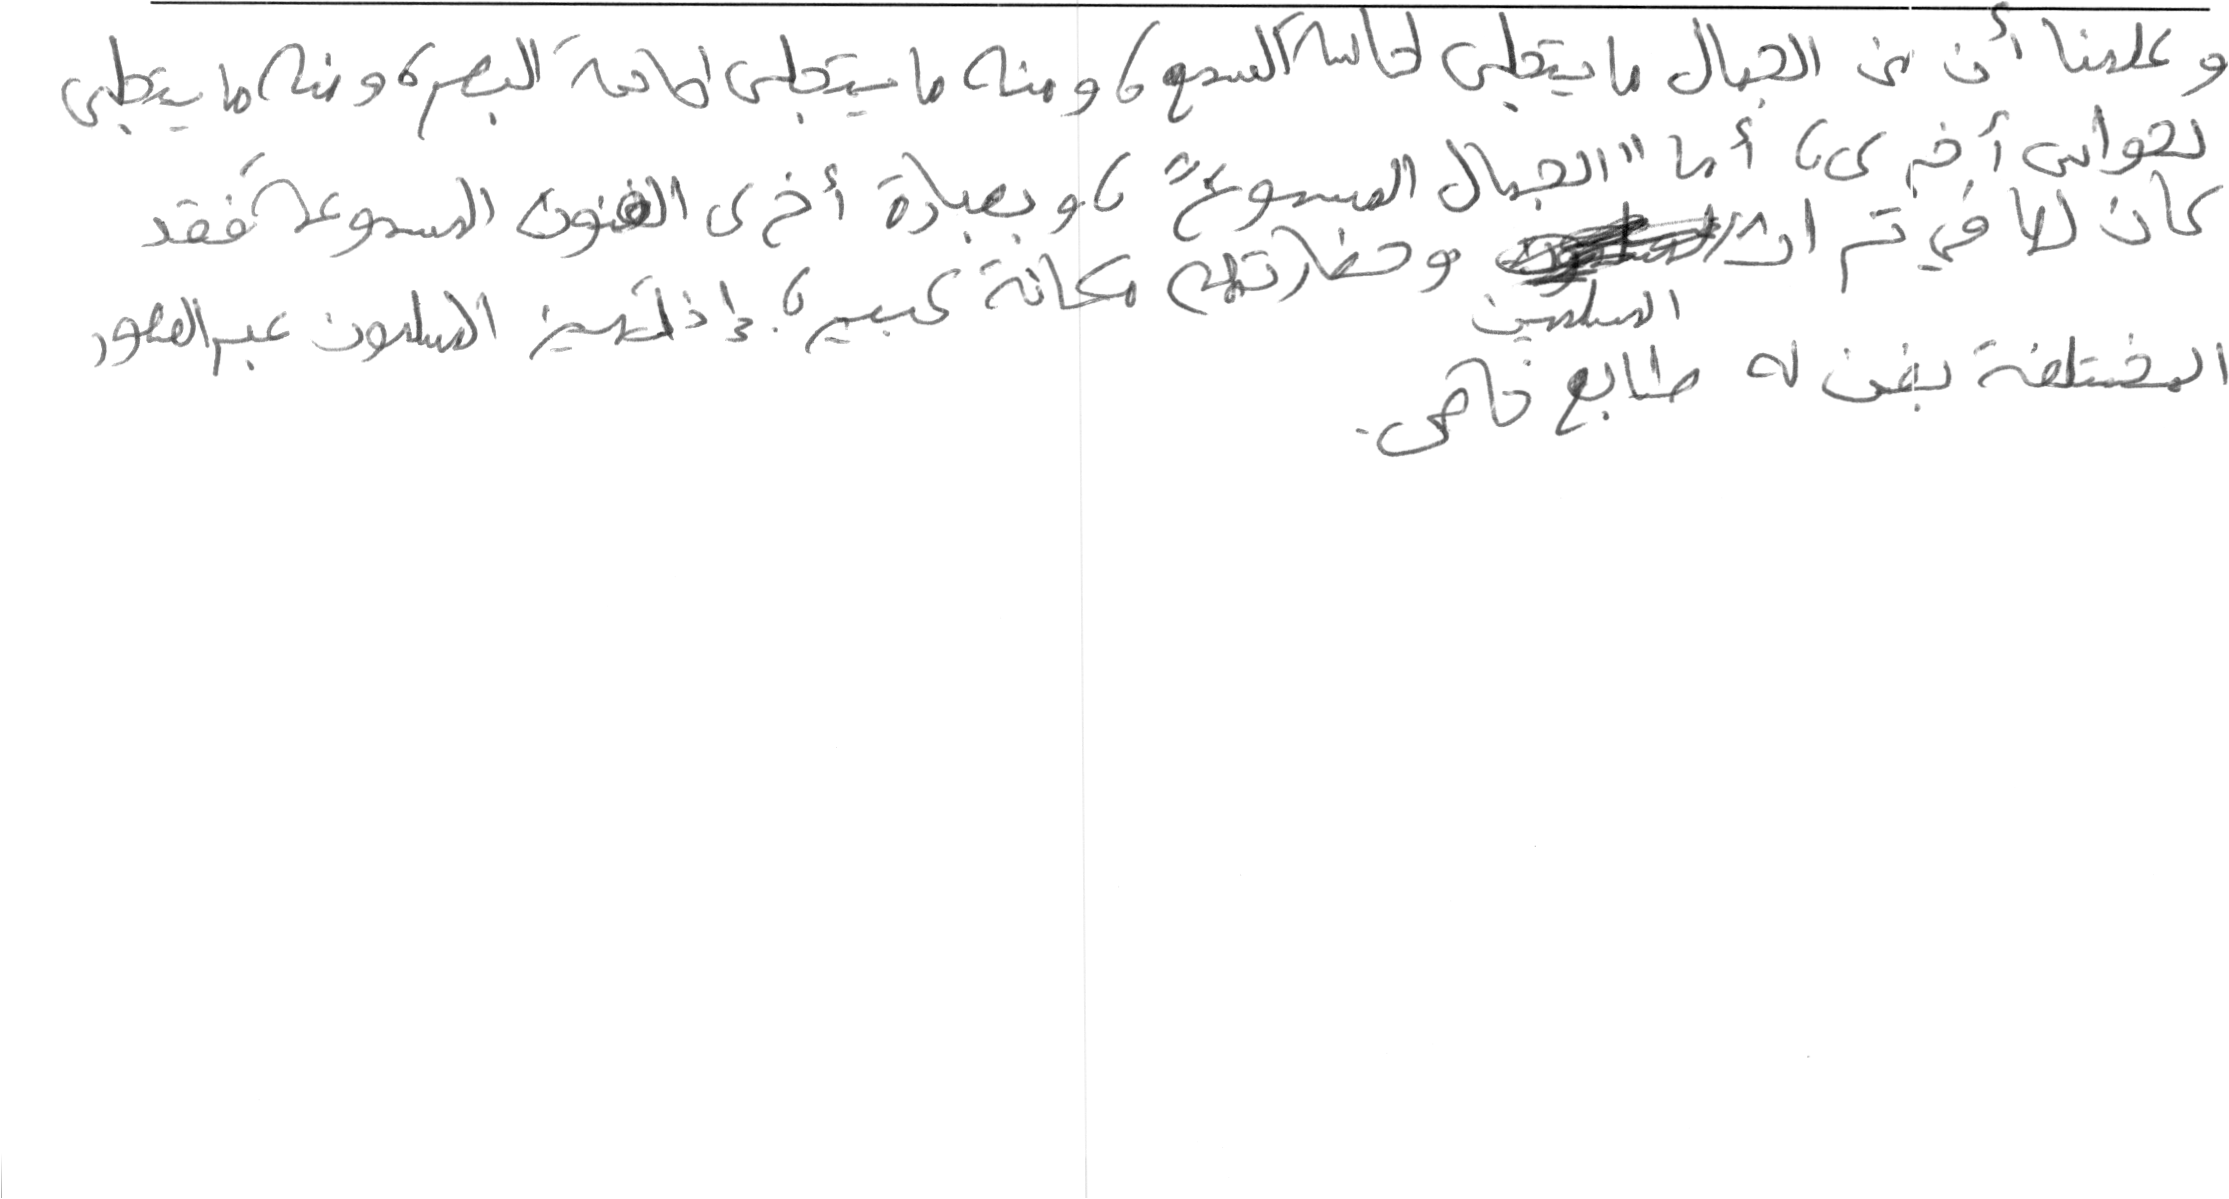 وعلمنا أن من الجمال ما يتجلى لحاسة السمع، ومنه ما يتجلى لحاسة البصر، ومنه ما يتجلى
لحواس أخرى، أما "الجمال المسموع"، وبعبارة أخرى الفنون المسموعة، فقد
كان لها في تراث المسلمين وحضارتهم مكانة كبيرة، إذ تميز المسلمون عبر العصور
المختلفة بفن له طابع خاص.